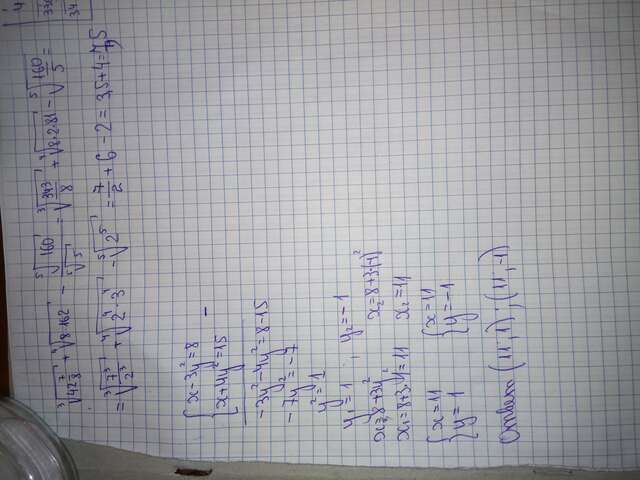 ∛(42 7/8) + ∜(8·162) − ⁵√160 / ⁵√5 = ∛(343/8) + ∜(8·2·81) − ⁵√(160/5) =
= ∛(7³/2³) + ∜(2⁴·3⁴) − ⁵√(2⁵) = 7/2 + 6 − 2 = 3,5 + 4 = 7,5
{ x − 3y² = 8 −
{ x + 4y² = 15
−3y² − 4y² = 8 − 15
−7y² = −7
y² = 1
y₁ = 1 ; y₂ = −1
x = 8 + 3y² x₂ = 8 + 3·(−1)²
x₁ = 8 + 3·1 = 11 x₂ = 11
{ x = 11 { x = 11
{ y = 1 { y = −1
Ответ (11; 1); (11, −1)